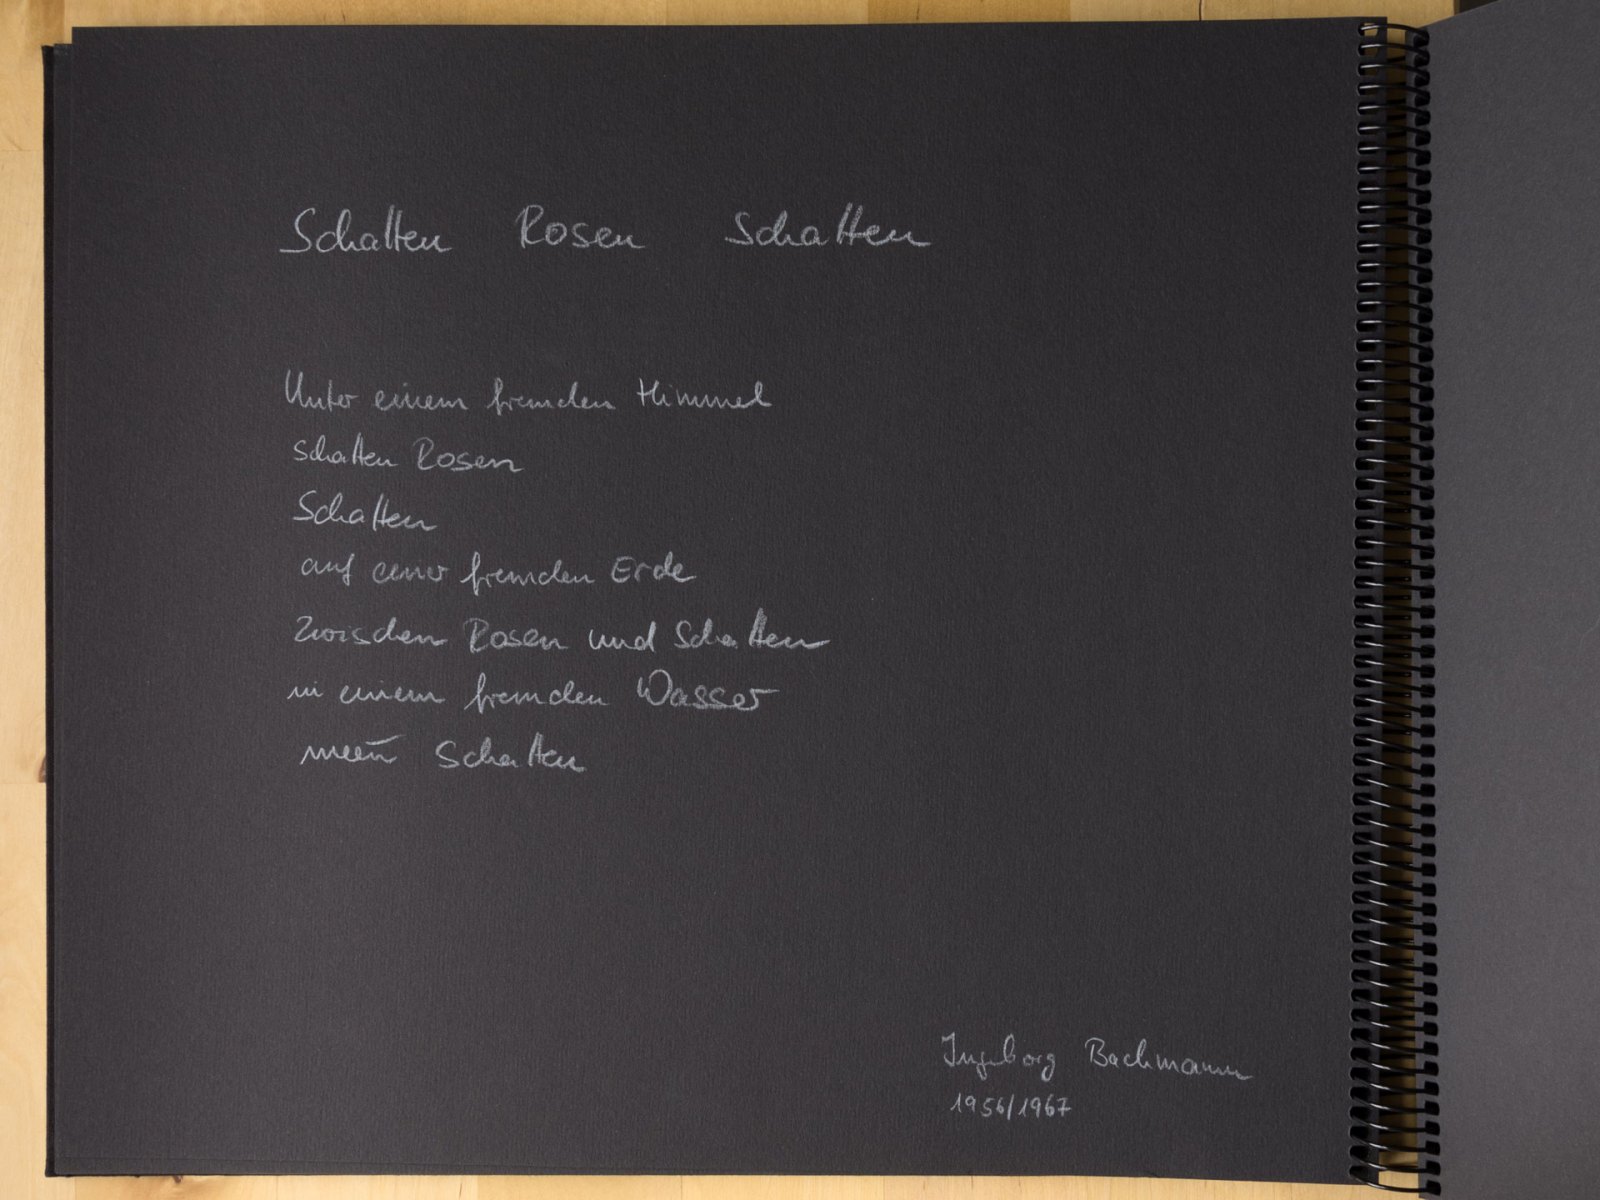 Schatten Rosen Schatten
Unter einem fremden Himmel
schatten Rosen
Schatten
auf einer fremden Erde
zwischen Rosen und Schatten
in einem fremden Wasser
mein Schatten
Ingeborg Bachmann
1956/1967